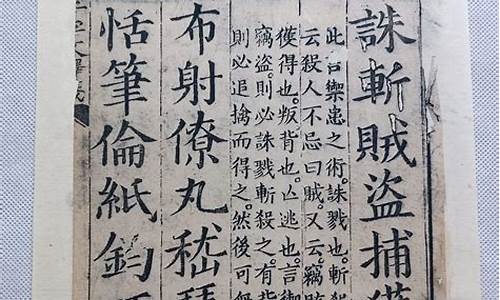 誅斬賊盜捕獲
此言禦患之術。誅戮也。斬殺
云殺人不忌曰賊。又云。竊
獲得也。叛背也。亡逃也。言禦
竊盜。則必誅戮斬殺之。有背
則必追擒而得之。然後可無
布射僚丸嵇琴
恬筆倫紙鈞
字文釋義